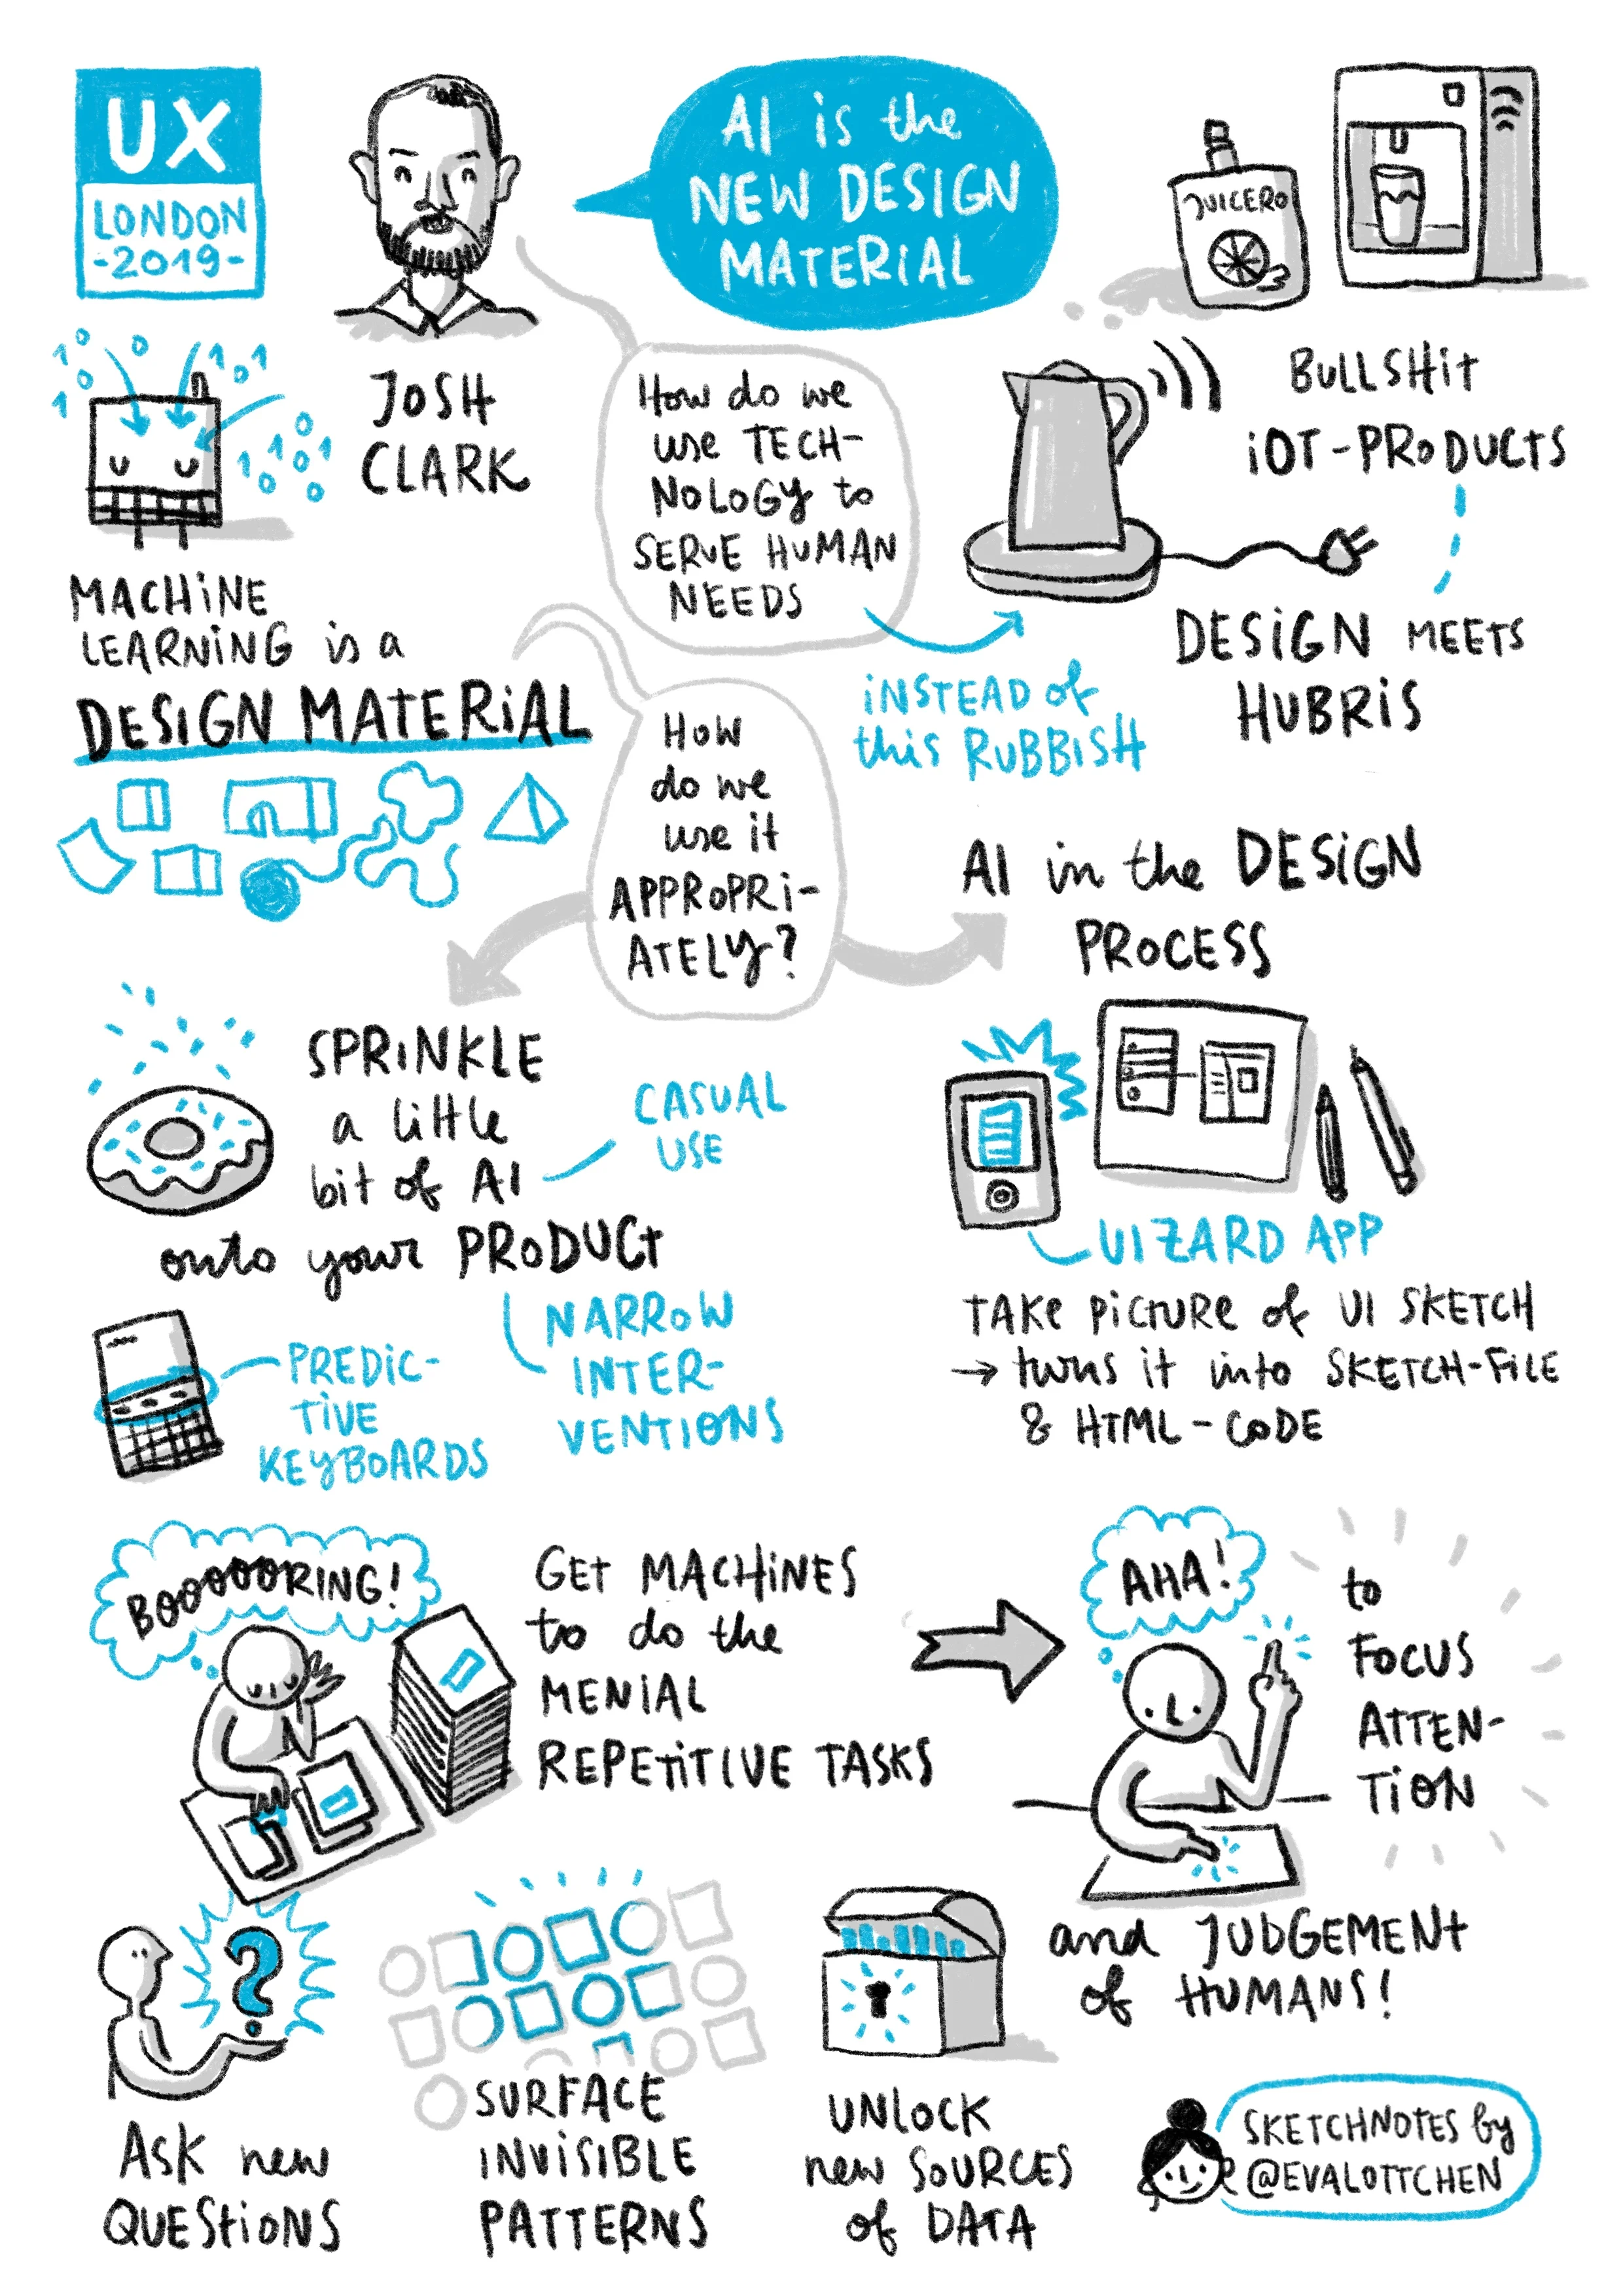 UX
LONDON
-2019-
AI is the
NEW DESIGN
MATERIAL
JUICERO
JOSH
CLARK
1 0 0 1 0 1
0
1
0 1
1 0 1
0 0
How do we
use TECH-
NOLOGY to
SERVE HUMAN
NEEDS
BULLSHiT
iOT-PRODUCTS
DESiGN MEETS
HUBRiS
iNSTEAD of
this RUBBISH
MACHiNE
LEARNING is a
DESIGN MATERiAL
How
do we
use it
APPROPRi-
ATELY?
AI in the DESiGN
PROCESS
SPRiNKLE
a little
bit of AI
onto your PRODUCt
CASUAL
USE
NARROW
INTER-
VENTIONS
PREDIC-
TiVE
KEYBOARDS
UIZARD APP
TAKE PiCTURE of UI SKETCH
→ turns it into SKETCH-FiLE
& HTML-CODE
BOOOOOORING!
GET MACHiNES
to do the
MENiAL
REPETiTIVE TASKS
AHA!
to
FOCUS
ATTEN-
TiON
and JUDGEMENt
of HUMANS!
?
ASK new
QUEStiONS
SURFACE
INViSIBLE
PATTERNS
UNLOCK
new SOURCES
of DATA
SKETCHNOTES by
@EVALOTTCHEN